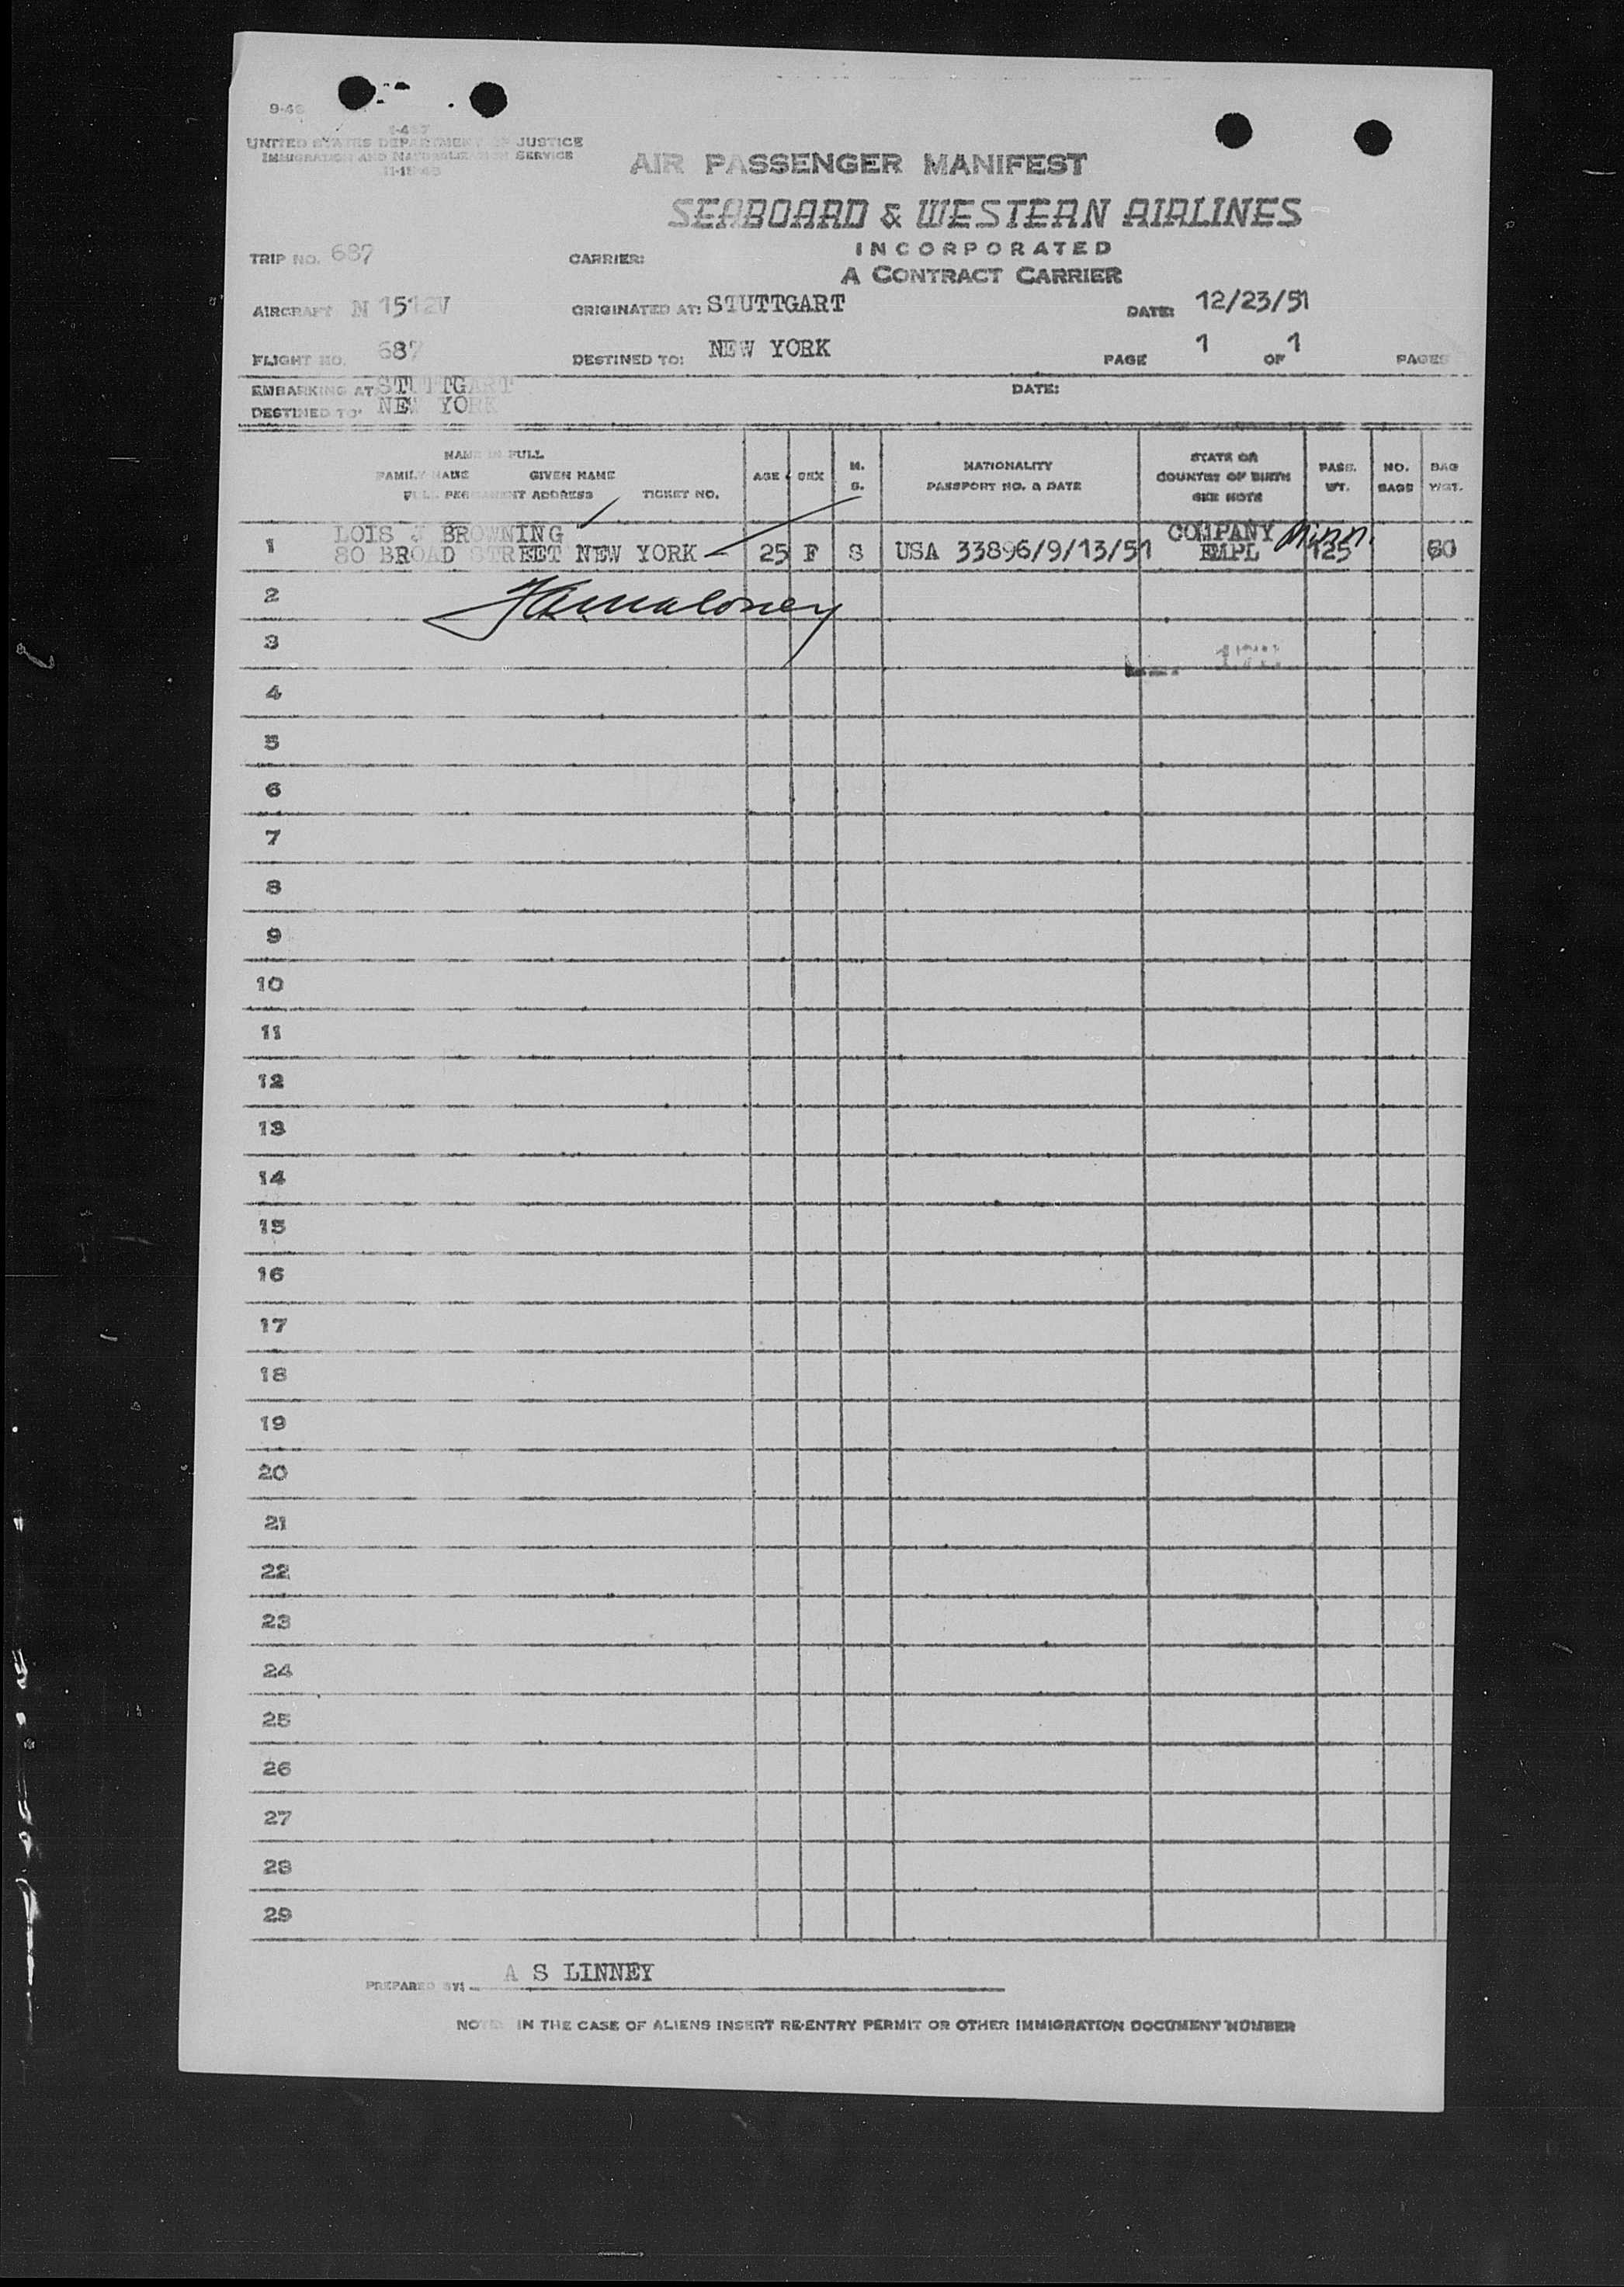 9-48
I-467
UNITED STATES DEPARTMENT OF JUSTICE
IMMIGRATION AND NATURALIZATION SERVICE
11-15-45
AIR PASSENGER MANIFEST
SEABOARD & WESTERN AIRLINES
INCORPORATED
A CONTRACT CARRIER
TRIP NO. 687 CARRIER:
AIRCRAFT N 1512V ORIGINATED AT: STUTTGART DATE: 12/23/51
FLIGHT NO. 687 DESTINED TO: NEW YORK PAGE 1 OF 1 PAGES
EMBARKING AT STUTTGART DATE:
DESTINED TO: NEW YORK
NAME IN FULL
FAMILY NAME GIVEN NAME
FULL PERMANENT ADDRESS TICKET NO.
AGE SEX M. S.
NATIONALITY
PASSPORT NO. & DATE
STATE OR
COUNTRY OF BIRTH
SEE NOTE
PASS. WT.
NO. BAGS
BAG WGT.
1 LOIS J BROWNING COMPANY Minn.
80 BROAD STREET NEW YORK 25 F S USA 33896/9/13/51 EMPL 125 60
2
3
4
5
6
7
8
9
10
11
12
13
14
15
16
17
18
19
20
21
22
23
24
25
26
27
28
29
PREPARED BY: A S LINNEY
NOTE: IN THE CASE OF ALIENS INSERT RE-ENTRY PERMIT OR OTHER IMMIGRATION DOCUMENT NUMBER